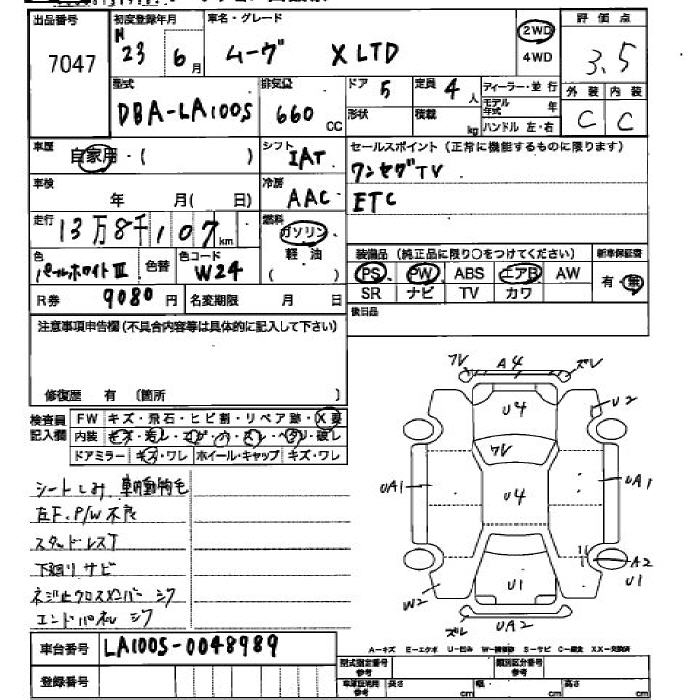 出品番号 初度登録年月 車名・グレード 評価点
7047 H 23 6月 ムーヴ X LTD 2WD 4WD 3.5
型式 排気量 ドア 5 定員 4人 ディーラー・並行 外装 内装
DBA-LA100S 660 CC 形状 積載 kg モデル年式 年 ハンドル 左・右 C C
車歴 自家用・( ) シフト IAT セールスポイント(正常に機能するものに限ります)
車検 年 月( 日) 冷房 AAC ワンセグTV
ETC
走行 13万8千107km 燃料 ガソリン 軽油 ( )
色 パールホワイトIII 色替 色コード W24 装備品(純正品に限り○をつけてください) 新車保証書
PS PW ABS エアB AW 有・無
R券 9080円 名変期限 月 日 SR ナビ TV カワ
注意事項申告欄(不具合内容等は具体的に記入して下さい) 後日品
修復歴 有 〔箇所 〕
検査員記入欄 FW キズ・飛石・ヒビ割・リペア跡・X要
内装 キズ・汚レ・コゲ・穴・スレ・ヘタリ・破レ
ドアミラー キズ・ワレ ホイール・キャップ キズ・ワレ
シートしみ 車内動物毛
右F.P/W不良
スタッドレスT
下廻りサビ
エンドパネル シワ
フレ A4 ズレ
U4 U2
フレ
UA1 U4 UA1
A2
U1
W2 U1
ズレ UA2
車台番号 LA100S-0048989
登録番号
A-キズ E-エクボ U-凹み W-補修跡 S-サビ C-腐食 XX-交換済
型式指定番号 参考 類別区分番号 参考
車庫証明用 参考 長さ cm 幅 cm 高さ cm